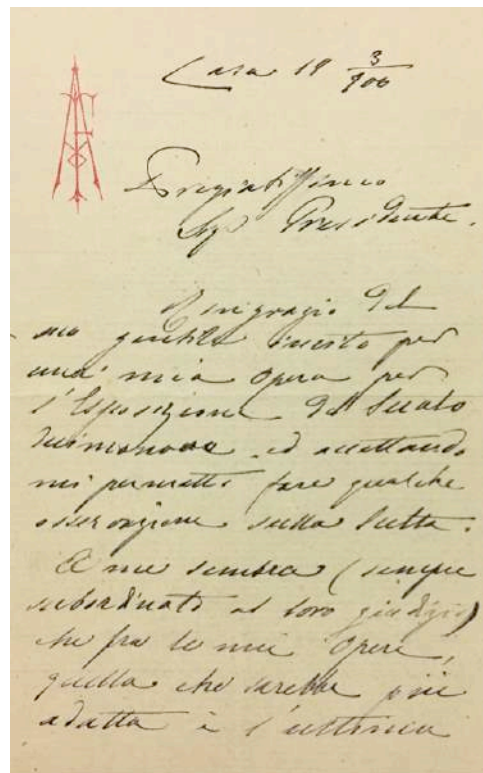 Casa 19 3/900
Pregiatissimo
Sigr Presidente.
Ringrazio del
suo gentile invito per
una mia opera per
l'Esposizione del Secolo
decimonono. ed accettando
mi permetto fare qualche
osservazione sulla scelta.
A me sembra (sempre
subordinato al loro giudizio)
che fra le mie opere,
quella che sarebbe più
adatta è l'ultima